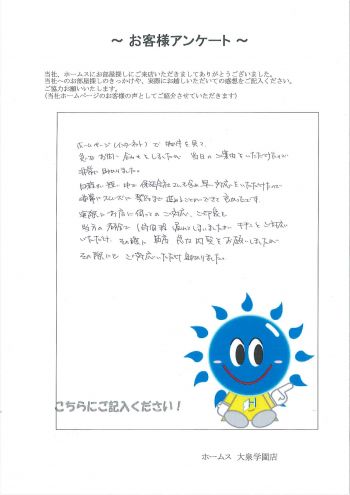 ～ お客様アンケート ～
当社、ホームスにお部屋探しにご来店いただきましてありがとうございました。
当社へのお部屋探しのきっかけや、実際にお越しいただいての感想をご記入ください。
ご協力お願いします。
(当社ホームページのお客様の声としてご紹介させていただきます)
ホームページ(インターネット)で物件を見て、
急なお問い合わせをしましたが、当日のご案内をいただけたので
非常に助かりました。
日程が短い中で保証会社さんも含め早い対応をいただけたので
非常にスムーズに契約まで進めることができて良かったです。
実際にお店に伺って
私共の都合で1時間程遅れてしまいましたが、キチンとご対応
いただけ、その後に再度 室内内見をお願いしましたが
その際にもご対応いただけ助かりました。
こちらにご記入ください！
ホームス 大泉学園店